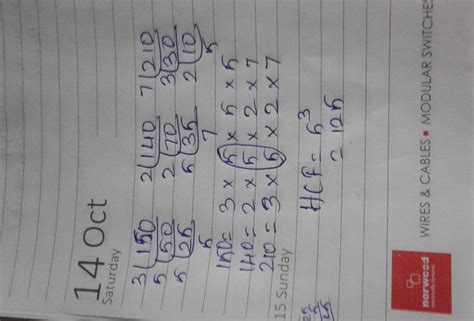 14 Oct
Saturday
3 150 2 140 7 210
5 50 2 70 3 30
5 25 5 35 2 10
5 7 5
150= 3 × 5 × 5 × 5
140= 2 × 5 × 2 × 7
210 = 3 × 5 × 2 × 7
15 Sunday
HCF = 5³
= 125
norwood
WIRES & CABLES ■ MODULAR SWITCHES